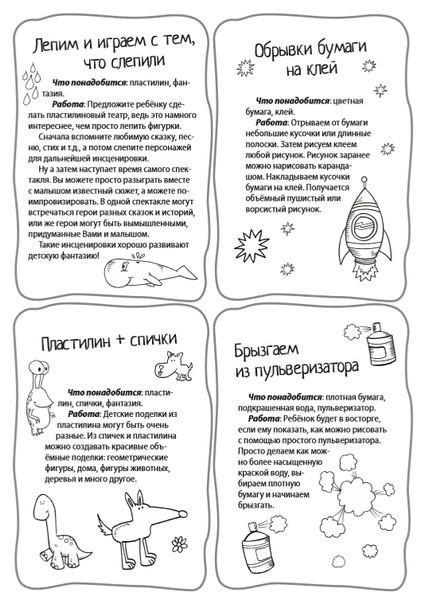 Лепим и играем с тем,
что слепили
Что понадобится: пластилин, фан-
тазия.
Работа: Предложите ребёнку сде-
лать пластилиновый театр, ведь это намного
интереснее, чем просто лепить фигурки.
Сначала вспомните любимую сказку, пес-
ню, стих и т.д., а потом слепите персонажей
для дальнейшей инсценировки.
Ну а затем наступает время самого спек-
такля. Вы можете просто разыграть вместе
с малышом известный сюжет, а можете по-
импровизировать. В одной спектакле могут
встречаться герои разных сказок и историй,
или же герои могут быть вымышленными,
придуманные Вами и малышом.
Такие инсценировки хорошо развивают
детскую фантазию!
Обрывки бумаги
на клей
Что понадобится: цветная
бумага, клей.
Работа: Отрываем от бумаги
небольшие кусочки или длинные
полоски. Затем рисуем клеем
любой рисунок. Рисунок заранее
можно нарисовать каранда-
шом. Накладываем кусочки
бумаги на клей. Получается
объёмный пушистый или
ворсистый рисунок.
Пластилин + спички
Что понадобится: пласти-
лин, спички, фантазия.
Работа: Детские поделки из
пластилина могут быть очень
разные. Из спичек и пластилина
можно создавать красивые объ-
ёмные поделки: геометрические
фигуры, дома, фигуры животных,
деревья и много другое.
Брызгаем
из пульверизатора
Что понадобится: плотная бумага,
подкрашенная вода, пульверизатор.
Работа: Ребёнок будет в восторге,
если ему показать, как можно рисовать
с помощью простого пульверизатора.
Просто делаем как мож-
но более насыщенную
краской воду, вы-
бираем плотную
бумагу и начинаем
брызгать.